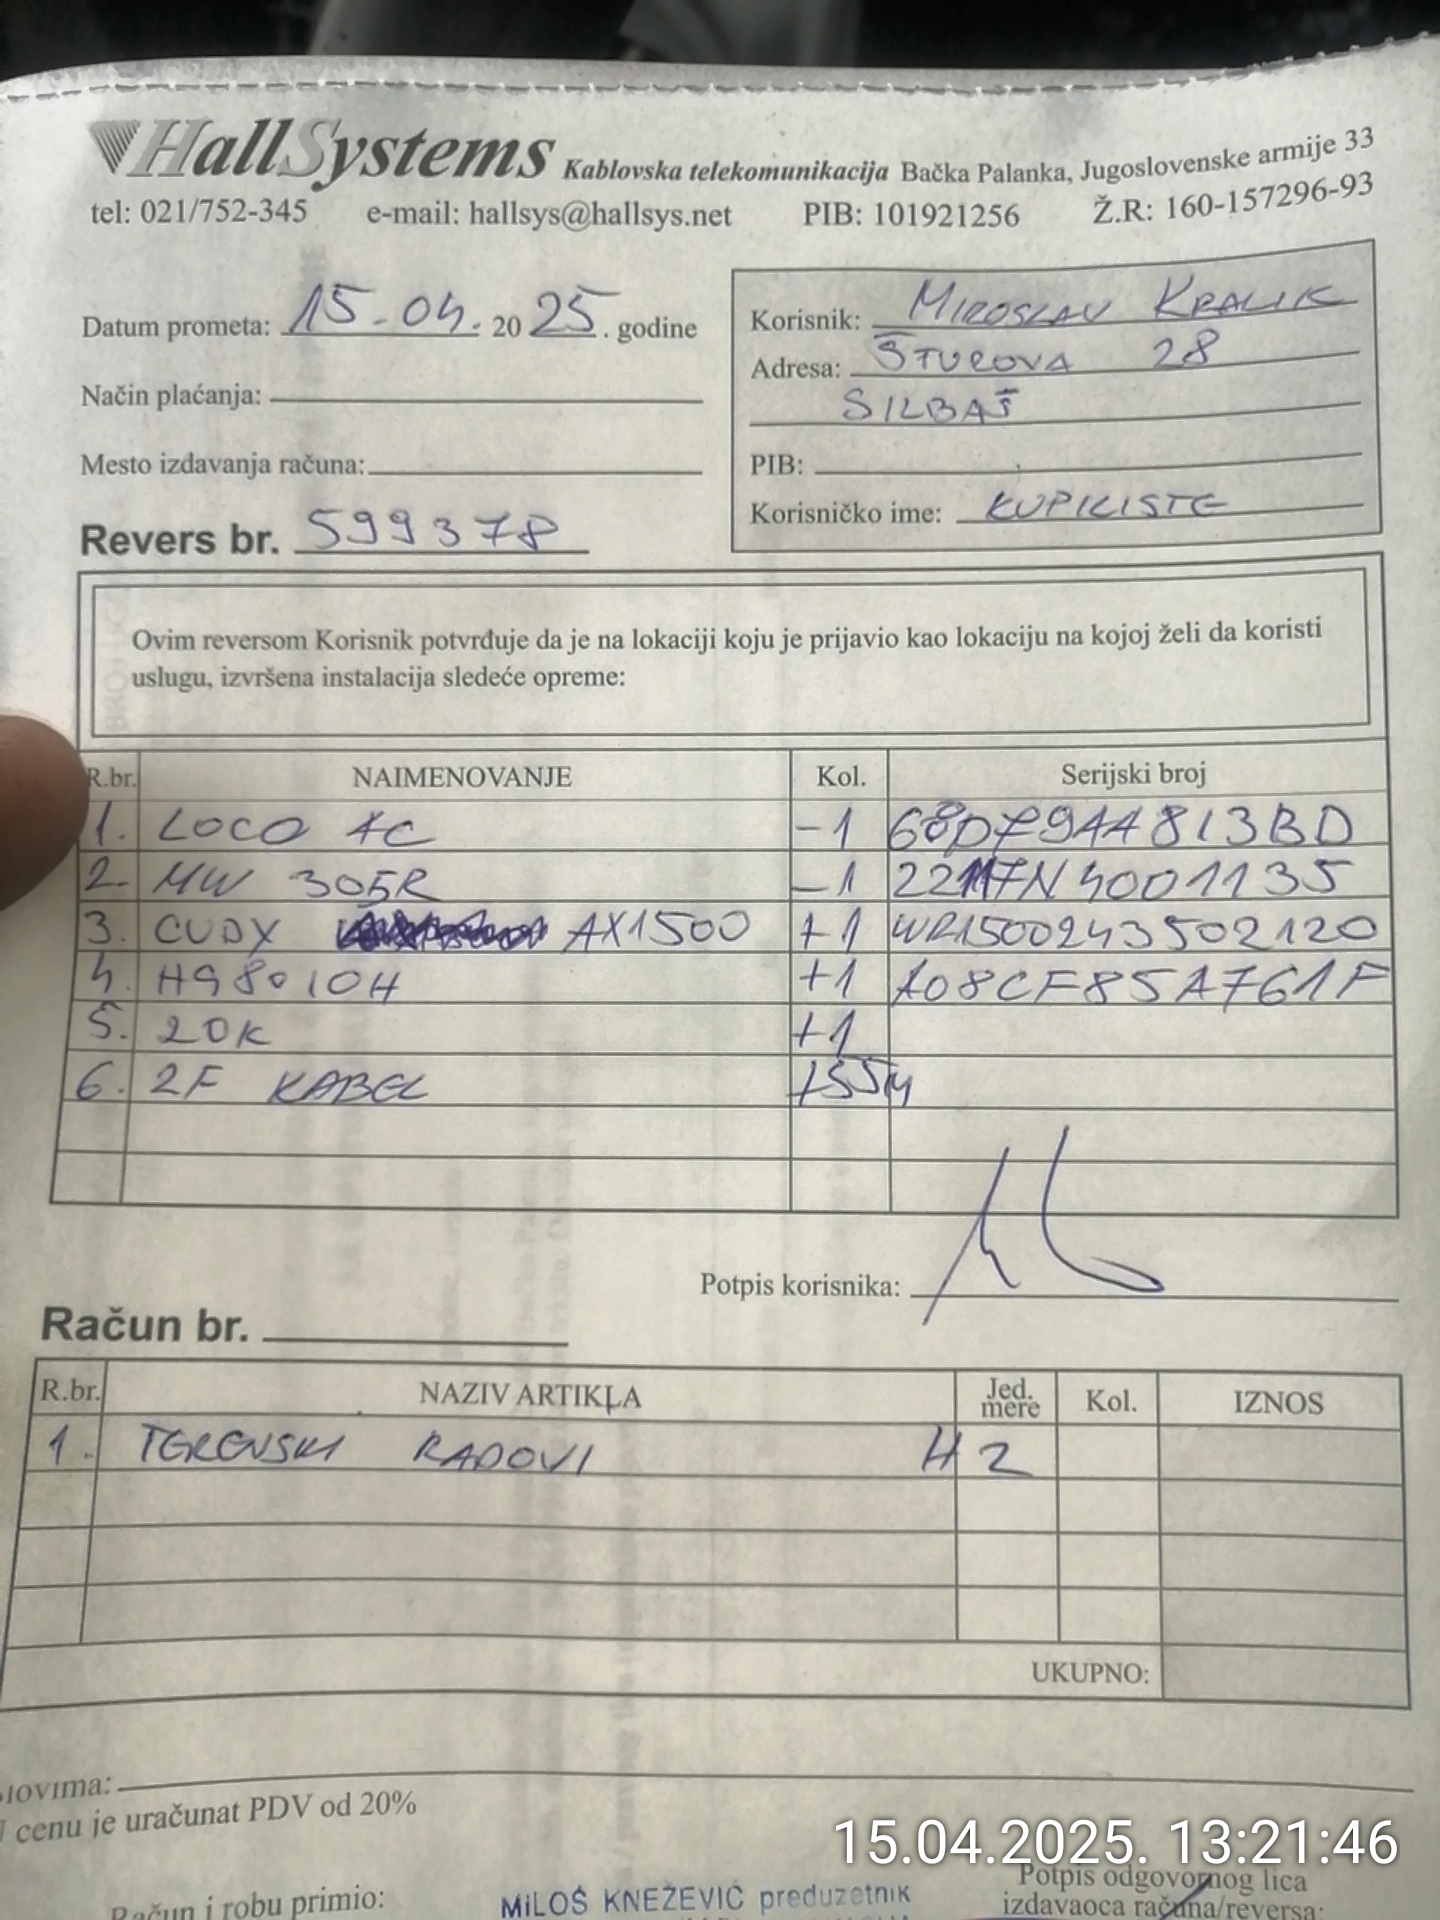 HallSystems Kablovska telekomunikacija Bačka Palanka, Jugoslovenske armije 33
tel: 021/752-345 e-mail: hallsys@hallsys.net PIB: 101921256 Ž.R: 160-157296-93
Datum prometa: 15.04. 2025. godine
Način plaćanja:
Mesto izdavanja računa:
Revers br. 599378
Korisnik: MIROSLAV KRALIK
Adresa: ŠTUROVA 28
SILBAŠ
PIB:
Korisničko ime: KUPIKISTE
Ovim reversom Korisnik potvrđuje da je na lokaciji koju je prijavio kao lokaciju na kojoj želi da koristi
uslugu, izvršena instalacija sledeće opreme:
R.br. NAIMENOVANJE Kol. Serijski broj
1. LOCO AC -1 68D79AA813BD
2. MW 305R -1 22117N4001135
3. CUDY AX1500 +1 WR1500243502120
4. HG8010H +1 A08CF85A761F
5. ZOK +1
6. 2F KABEL +55M
Potpis korisnika:
Račun br.
R.br. NAZIV ARTIKLA Jed. mere Kol. IZNOS
1. TERENSKI RADOVI H 2
UKUPNO:
cenu je uračunat PDV od 20%
15.04.2025. 13:21:46
Račun i robu primio:
MiLOŠ KNEŽEVIĆ preduzetnik
Potpis odgovornog lica
izdavaoca računa/reversa: